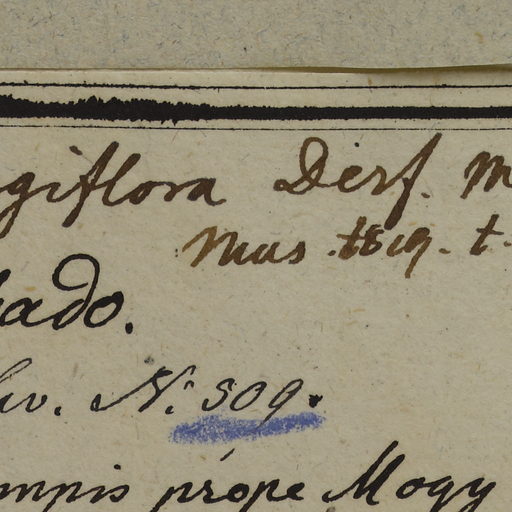 giflora Desf. M
Mus. 1819. t.
ado.
iv. N: 509.
mpis prope Mogy